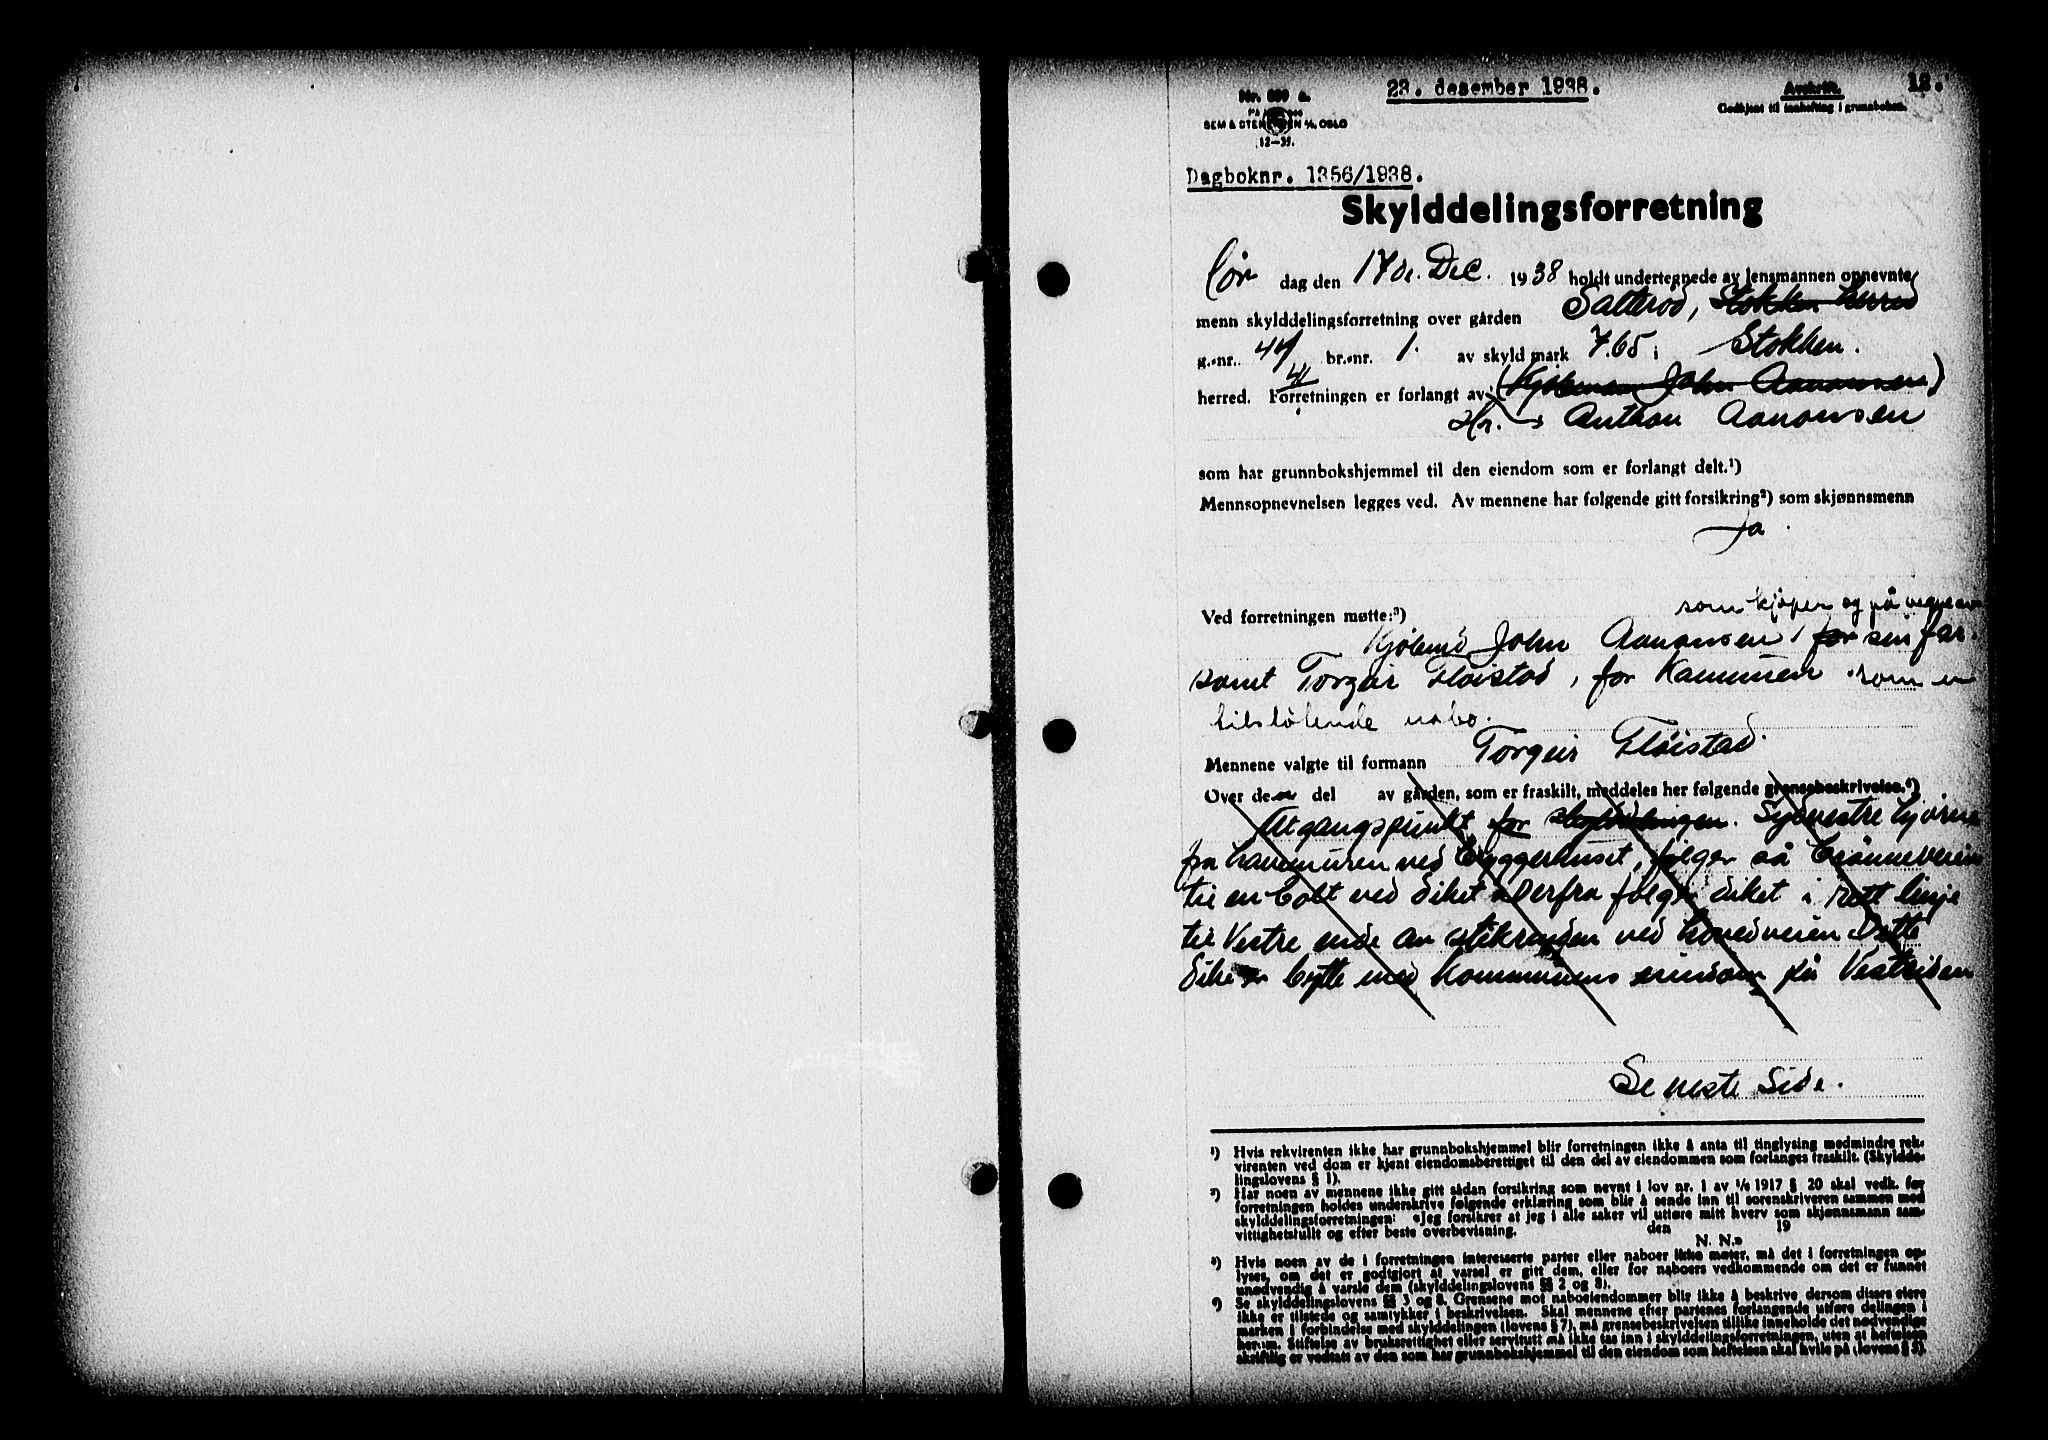 23. desember 1938.
Avskrift.
12.
Nr. 860 a.
Godkjent til innhefting i grunnboken.
SEM & STENERSEN A/S, OSLO
12—35.
Dagboknr. 1356/1938.
Skylddelingsforretning
Lør dag den 17de. Dec. 1938 holdt undertegnede av lensmannen opnevnte
menn skylddelingsforretning over gården Salterød, Stokken herred
g.-nr. 44 br.-nr. 1. av skyld mark 7.65 i Stokken.
herred. Forretningen er forlangt av (Kjølmand John Aanonsen)
Hr. Anthon Aanonsen
som har grunnbokshjemmel til den eiendom som er forlangt delt.¹)
Mennsopnevnelsen legges ved. Av mennene har følgende gitt forsikring²) som skjønnsmenn
Ja
som kjøper og på vegne av
Ved forretningen møtte:³)
John Aanonsen, for sin far.
samt Torgeir Fløistad, for Kommunen som er
tilstøtende nabo.
Mennene valgte til formann Torgeir Fløistad.
Over den del av gården, som er fraskilt, meddeles her følgende grensebeskrivelse.⁴)
Utgangspunkt for skylddelingen. Sydvestre hjørne
fra havemuren ved Byggerhuset, følger så brønneveien
til en bolt ved diket. Derfra følger diket i rett linje
til Vestre ende av stikrenden ved hovedveien Dette
dike er bytte med Kommunens eiendom på Vestsiden
Se neste Side.
¹) Hvis rekvirenten ikke har grunnbokshjemmel blir forretningen ikke å anta til tinglysing medmindre rek-
virenten ved dom er kjent eiendomsberettiget til den del av eiendommen som forlanges fraskilt. (Skyldde-
lingslovens § 1).
²) Har noen av mennene ikke gitt sådan forsikring som nevnt i lov nr. 1 av 1/6 1917 § 20 skal vedk. før
forretningen holdes underskrive følgende erklæring som blir å sende inn til sorenskriveren sammen med
skylddelingsforretningen: «Jeg forsikrer at jeg i alle saker vil utføre mitt hverv som skjønnsmann sam-
vittighetsfullt og efter beste overbevisning. den 19
N. N.»
³) Hvis noen av de i forretningen interesserte parter eller naboer ikke møter, må det i forretningen op-
lyses, om det er godtgjort at varsel er gitt dem, eller for naboers vedkommende om det er funnet
unødvendig å varsle dem (skylddelingslovens §§ 2 og 8).
⁴) Se skylddelingslovens §§ 3 og 8. Grensene mot naboeiendommer blir ikke å beskrive dersom disses eiere
ikke er tilstede og samtykker i beskrivelsen. Skal mennene efter partenes forlangende utføre delingen i
marken i forbindelse med skylddelingen (lovens § 7), må grensebeskrivelsen tillike inneholde det nødvendige
herom. Stiftelse av bruksrettighet eller servitutt må ikke tas inn i skylddelingsforretningen, uten at heftelsen
skriftlig er vedtatt av den som har grunnbokshjemmel til den eiendom som heftelsen skal hvile på (lovens § 5).